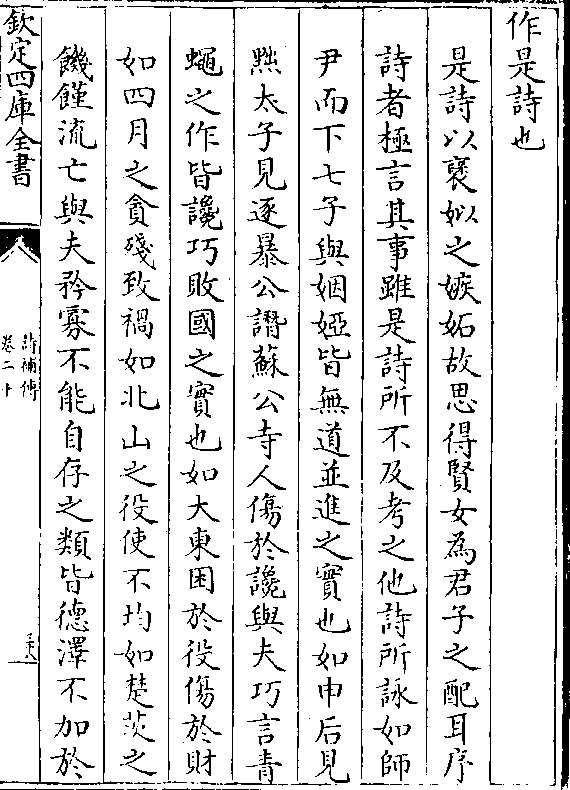 作是詩也
是詩以襃姒之嫉妬故思得賢女為君子之配耳序
詩者極言其事雖是詩所不及考之他詩所詠如師
尹而下七子與姻婭皆無道並進之實也如申后見
黜太子見逐暴公譖蘇公寺人傷於讒與夫巧言青
蠅之作皆讒巧敗國之實也如大東困於役傷於財
如四月之貪殘致禍如北山之役使不均如楚茨之
饑饉流亡與夫矜寡不能自存之類皆德澤不加於
欽定四庫全書
詩補傳
卷二十